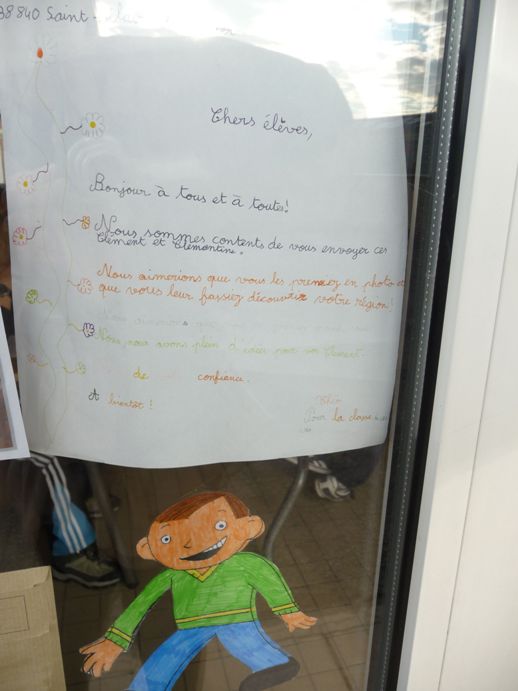 38840 Saint
Chers élèves,
Bonjour à tous et à toutes!
Nous sommes contents de vous envoyer ces
Clément et Clémentine.
Nous aimerions que vous les preniez en photo et
que vous leur fassiez découvrir votre région!
Nous aimerions que
Nous nous avons plein d' pour vos Clément.
de confiance.
A bientôt!
Théo
Pour la classe